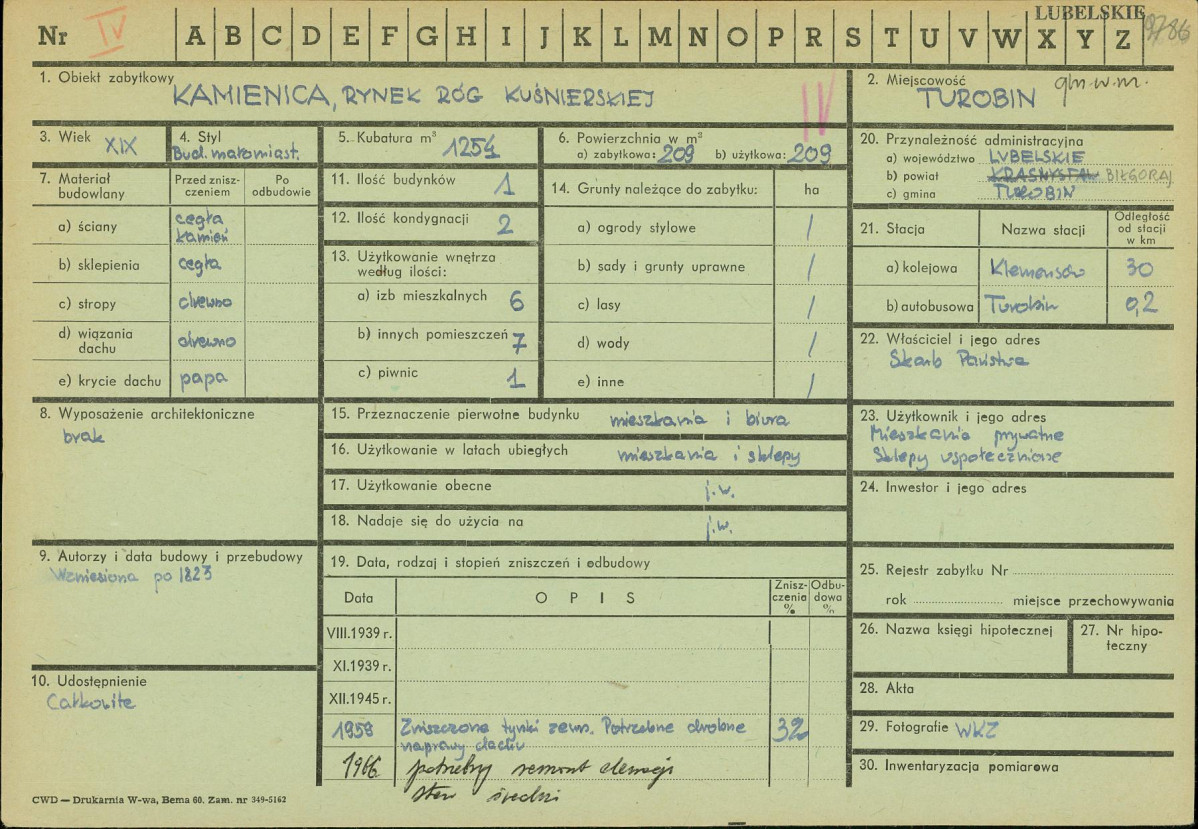 LUBELSKIE
Nr IV A B C D E F G H I J K L M N O P R S T U V W X Y Z
1. Obiekt zabytkowy
KAMIENICA, RYNEK RÓG KUŚNIERSKIEJ
IV
2. Miejscowość
TUROBIN gm.w.m.
3. Wiek XIX
4. Styl
Bud. małomiast.
5. Kubatura m³ 1254
6. Powierzchnia w m²
a) zabytkowa: 209 b) użytkowa: 209
20. Przynależność administracyjna
a) województwo LUBELSKIE
b) powiat KRASNYSTAW BIŁGORAJ
c) gmina TUROBIN
7. Materiał budowlany
Przed znisz-
czeniem
Po
odbudowie
a) ściany cegła
kamień
b) sklepienia cegła
c) stropy drewno
d) wiązania
dachu drewno
e) krycie dachu papa
11. Ilość budynków 1
12. Ilość kondygnacji 2
13. Użytkowanie wnętrza
według ilości:
a) izb mieszkalnych 6
b) innych pomieszczeń 7
c) piwnic 1
14. Grunty należące do zabytku: ha
a) ogrody stylowe /
b) sady i grunty uprawne /
c) lasy /
d) wody /
e) inne /
21. Stacja Nazwa stacji
Odległość
od stacji
w km
a) kolejowa Klemensów 30
b) autobusowa Turobin 0,2
22. Właściciel i jego adres
Skarb Państwa
8. Wyposażenie architektoniczne
brak
15. Przeznaczenie pierwotne budynku mieszkania i biura
16. Użytkowanie w latach ubiegłych mieszkania i sklepy
17. Użytkowanie obecne j.w.
18. Nadaje się do użycia na j.w.
23. Użytkownik i jego adres
Mieszkania prywatne
Sklepy uspołecznione
24. Inwestor i jego adres
9. Autorzy i data budowy i przebudowy
Wzniesiona po 1823
10. Udostępnienie
Całkowite
19. Data, rodzaj i stopień zniszczeń i odbudowy
Data OPIS
Znisz-
czenia
%
Odbu-
dowa
%
VIII.1939 r.
XI.1939 r.
XII.1945 r.
1958 Zniszczone tynki zewn. Potrzebne drobne 32
naprawy dachu
1966 potrzebny remont elewacji
stan średni
25. Rejestr zabytku Nr
rok miejsce przechowywania
26. Nazwa księgi hipotecznej
27. Nr hipo-
teczny
28. Akta
29. Fotografie WKZ
30. Inwentaryzacja pomiarowa
CWD — Drukarnia W-wa, Bema 60. Zam. nr 349-5162